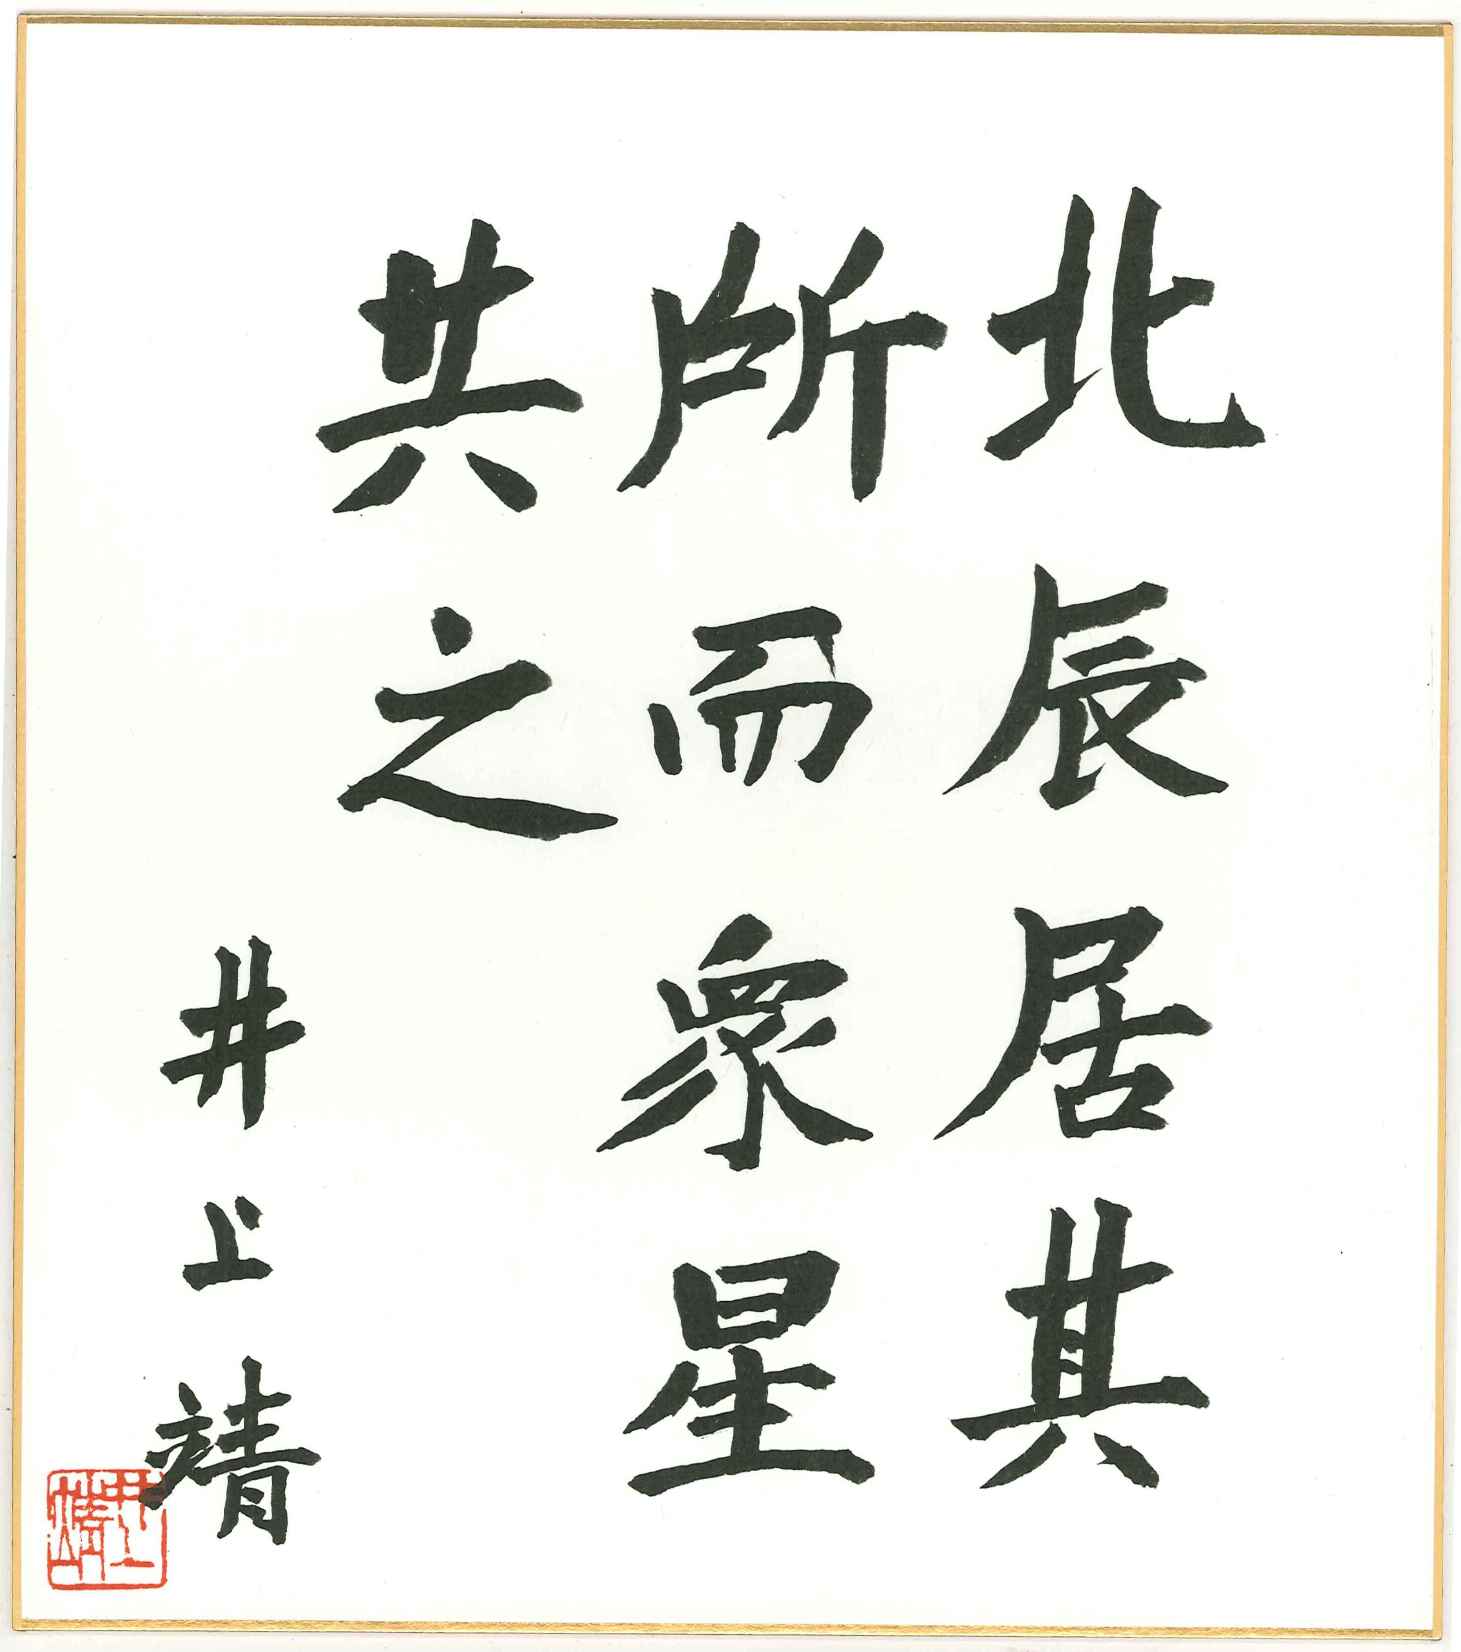 北辰居其
所而衆星
共之
井上靖
井上靖